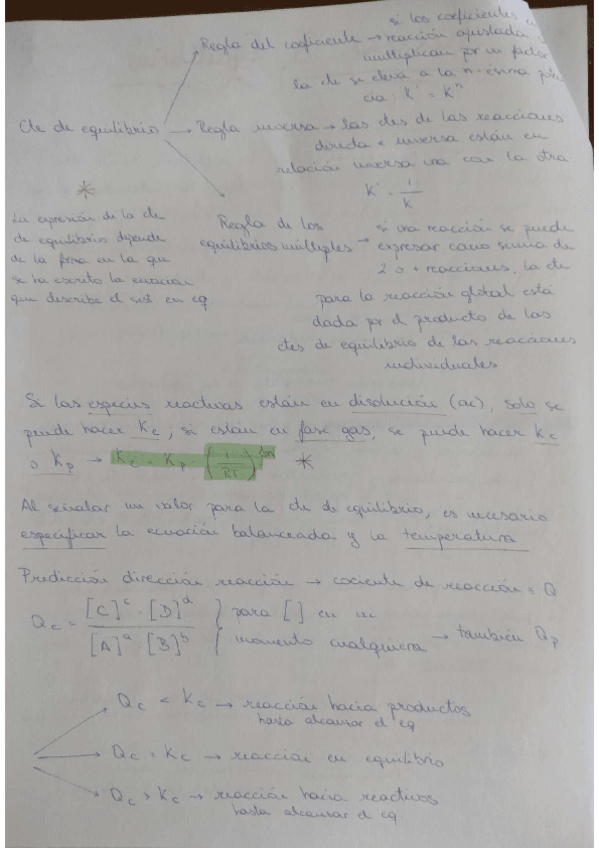 si los coeficientes
Regla del coeficiente → reacción ajustada
multiplican por un factor
la cte se eleva a la n-ésima
cia: K' = Kⁿ
Cte de equilibrio → Regla inversa → las ctes de las reacciones
directa e inversa están en
relación inversa una con la otra
K' = 1/K
*
La expresión de la cte
de equilibrio depende
de la forma en la que
se ha escrito la ecuación
que describe el sist en eq
Regla de los
equilibrios múltiples → si una reacción se puede
expresar como suma de
2 o + reacciones, la cte
para la reacción global está
dada por el producto de las
ctes de equilibrio de las reacciones
individuales
Si las especies reactivas están en disolución (ac), solo se
puede hacer Kc; si están en fase gas, se puede hacer Kc
o Kp → Kc = Kp · (1/RT)^Δn *
Al señalar un valor para la cte de equilibrio, es necesario
especificar la ecuación balanceada y la temperatura
Predicción dirección reacción → cociente de reacción = Q
Qc = [C]^c · [D]^d / [A]^a · [B]^b } para [ ] en un
momento cualquiera → también Qp
Qc < Kc → reacción hacia productos
hasta alcanzar el eq
Qc = Kc → reacción en equilibrio
Qc > Kc → reacción hacia reactivos
hasta alcanzar el eq.